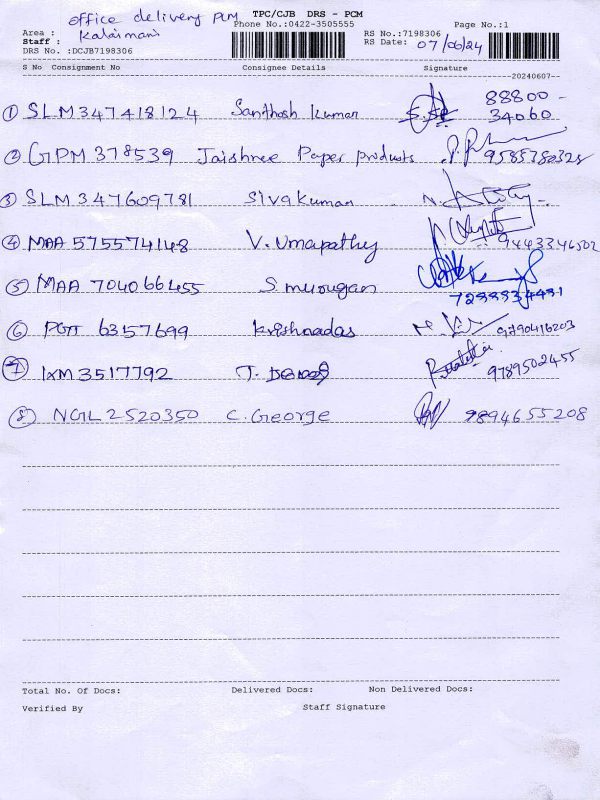 office delivery PCM
TPC/CJB DRS - PCM
Area : Kalaimani
Phone No.:0422-3505555
RS No.:7198306
Page No.:1
Staff :
RS Date: 07/06/24
DRS No. :DCJB7198306
S No Consignment No Consignee Details Signature
20240607
① SLM347418124 Santhosh Kumar 88800 - 34060
② GPM 378539 Jaishree Paper products 9585780328
③ SLM347609781 Sivakumar
④ MAA 575574148 V. Umapathy 9443346502
⑤ MAA 704066455 S. murugan
⑥ 6357699 Krishnadas 9790416203
⑦ IXM3517792 T. 9789502455
⑧ NGL2520350 C. George 9894655208
Total No. Of Docs: Delivered Docs: Non Delivered Docs:
Verified By Staff Signature